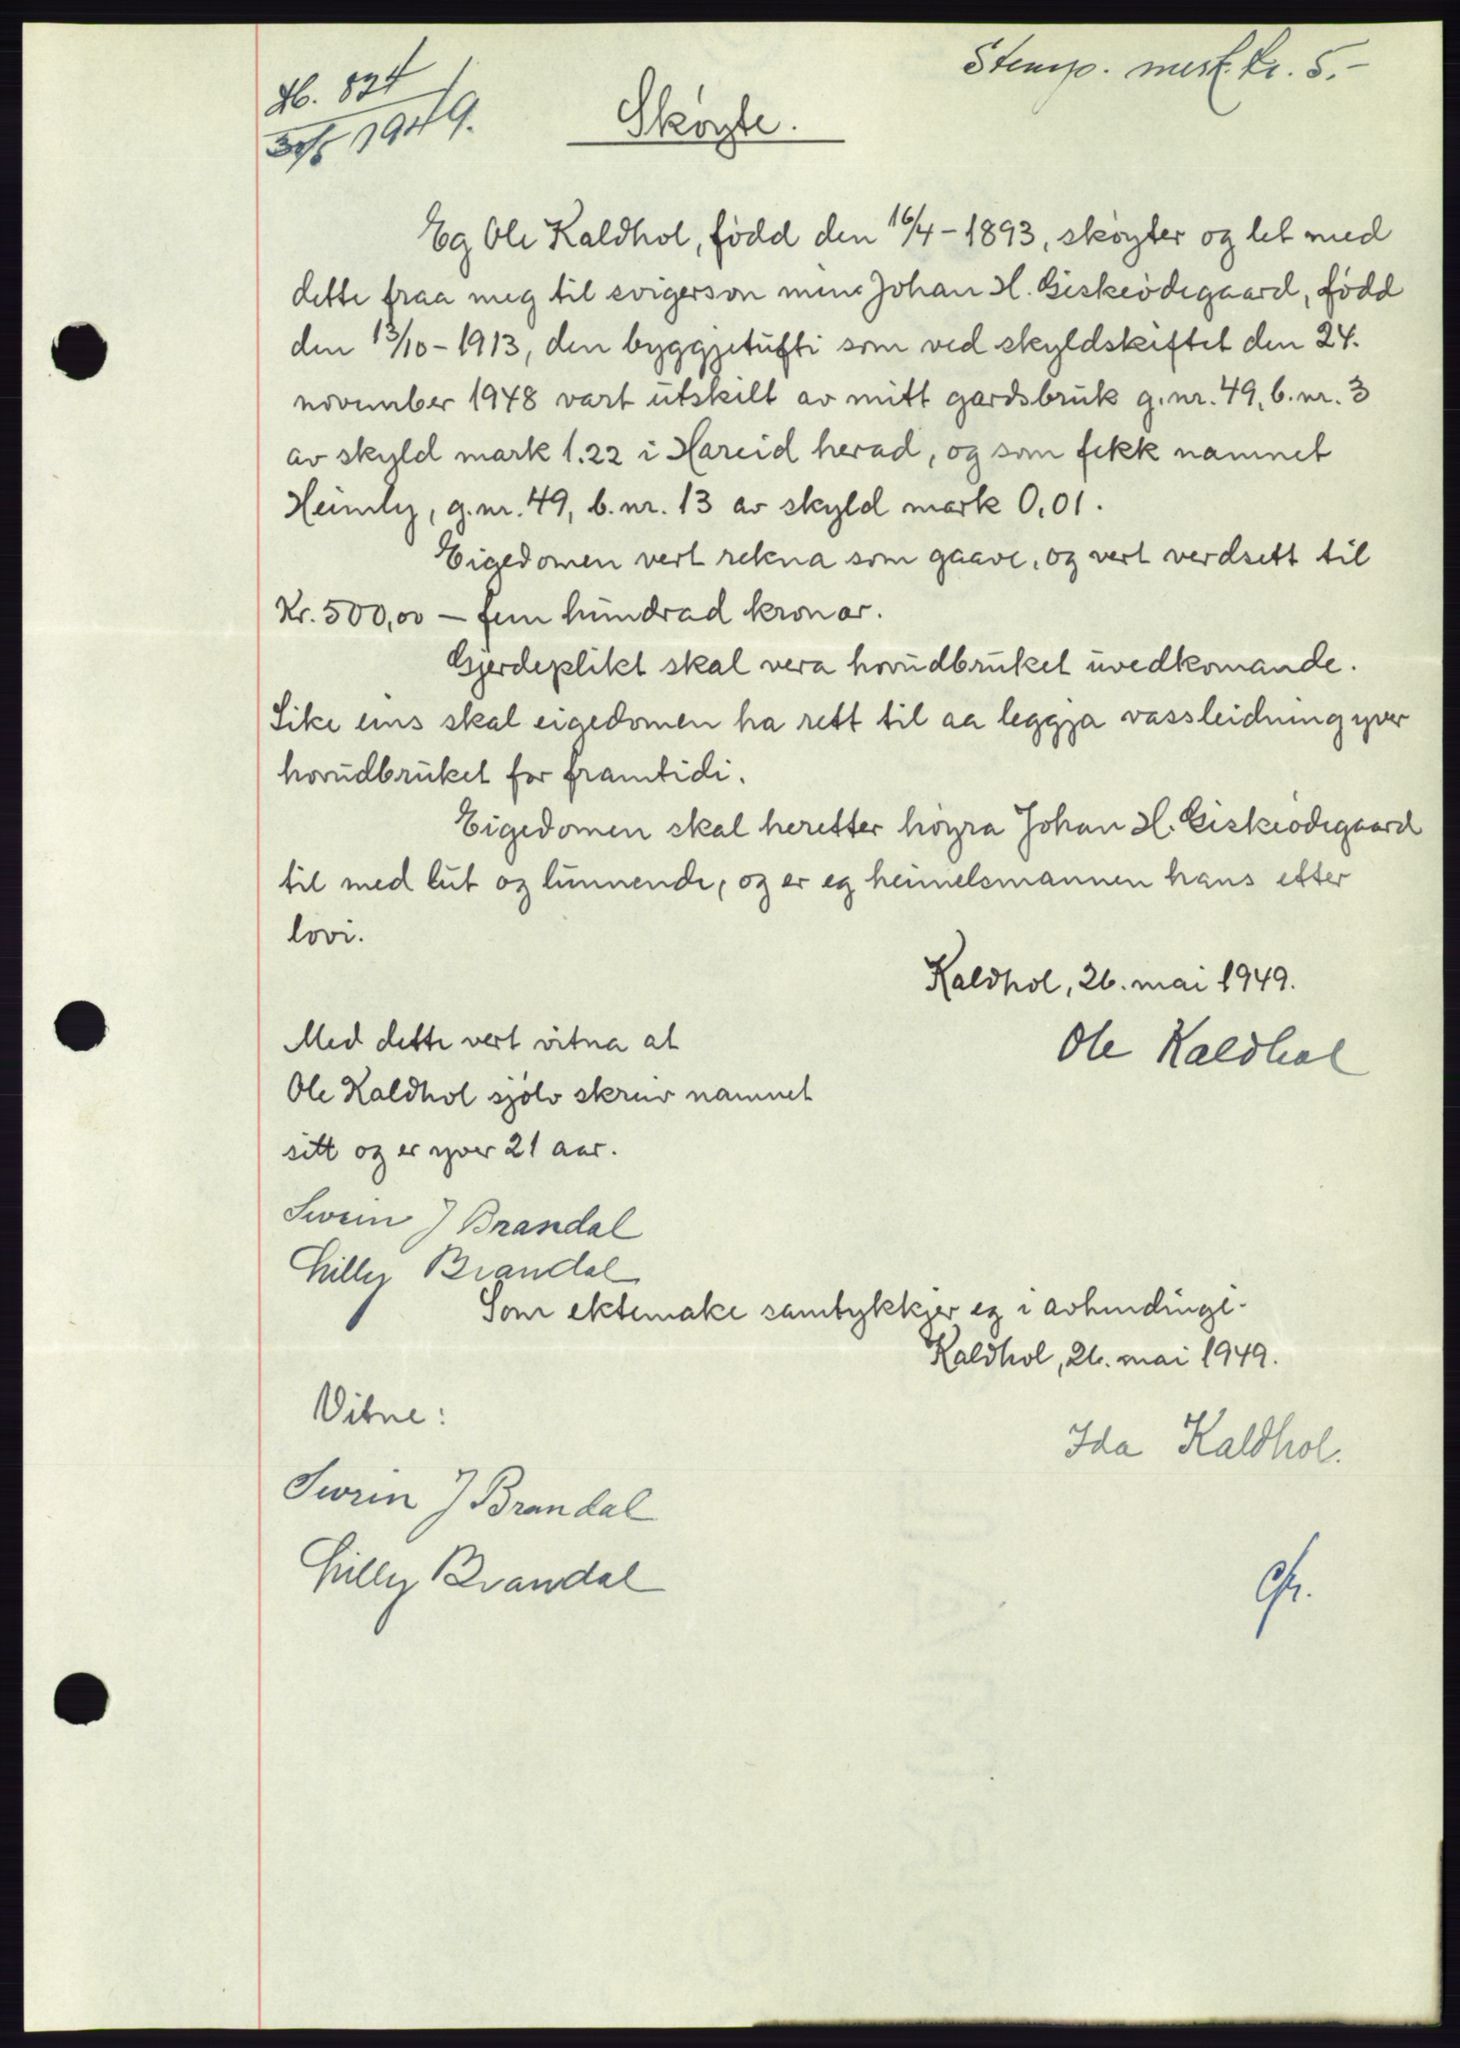 Stemp. merk. kr. 5.-
Db. 824
30/5 1949.
Skøyte.
Eg Ole Kaldhol, fødd den 16/4 - 1893, skøyter og let med
dette fraa meg til svigerson min Johan H. Giskeødegaard, fødd
den 13/10 - 1913, den byggjetufti som ved skyldskiftet den 24.
november 1948 vart utskilt av mitt gardsbruk g.nr. 49, b.nr. 3
av skyld mark 1.22 i Hareid herad, og som fekk namnet
Heimly, g.nr. 49, b.nr. 13 av skyld mark 0,01.
Eigedomen vert rekna som gaave, og vert verdsett til
Kr. 500,00 — fem hundrad kronor.
Gjerdeplikt skal vera hovudbruket uvedkomande.
Like eins skal eigedomen ha rett til aa leggja vassleidning yver
hovudbruket for framtidi.
Eigedomen skal heretter høyra Johan H. Giskeødegaard
til med lut og lunnende, og er eg heimelsmannen hans etter
lovi.
Kaldhol, 26. mai 1949.
Ole Kaldhol
Med dette vert vitna at
Ole Kaldhol sjølv skreiv namnet
sitt og er yver 21 aar.
Sivrin J Brandal
Lilly Brandal
Som ektemake samtykkjer eg i avhendingi.
Kaldhol, 26. mai 1949.
Ida Kaldhol.
Vitne:
Sivrin J Brandal
Lilly Brandal